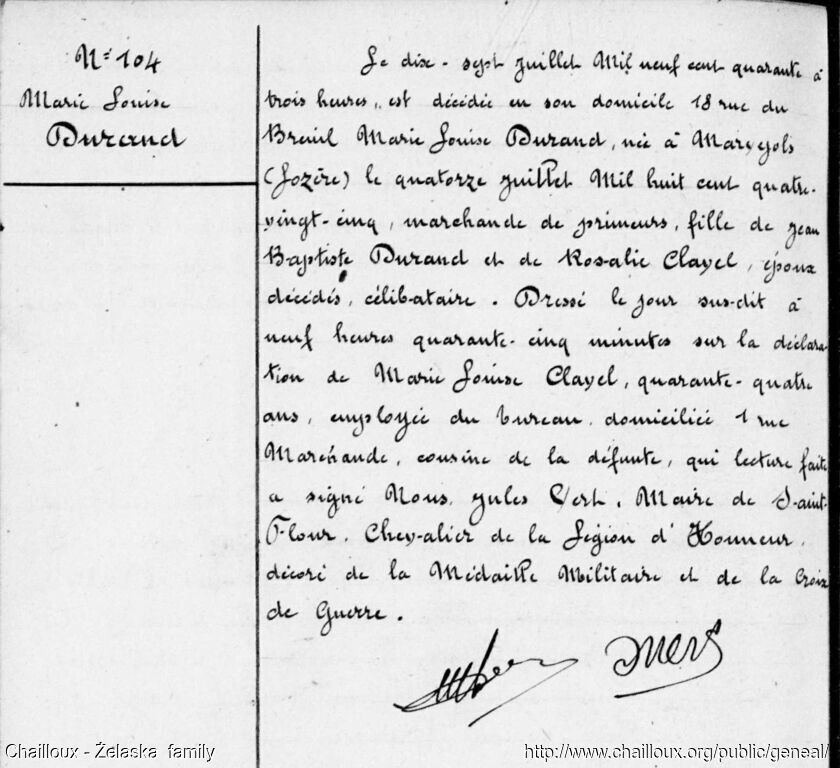 N° 104
Marie Louise
Durand
Le dix-sept juillet Mil neuf cent quarante à
trois heures, est décédée en son domicile 18 rue du
Breuil Marie Louise Durand, née à Marvejols
(Lozère) le quatorze juillet Mil huit cent quatre-
vingt-cinq, marchande de primeurs, fille de Jean
Baptiste Durand et de Rosalie Clavel, époux
décédés, célibataire. Dressé le jour sus-dit à
neuf heures quarante-cinq minutes sur la déclara-
tion de Marie Louise Clavel, quarante-quatre
ans, employée du bureau, domiciliée 1 rue
Marchande, cousine de la défunte, qui lecture faite
a signé Nous, Jules Vert, Maire de Saint-
Flour, Chevalier de la Légion d'Honneur,
décoré de la Médaille Militaire et de la Croix
de Guerre.
Chailloux - Żelaska family
http://www.chailloux.org/public/geneal/